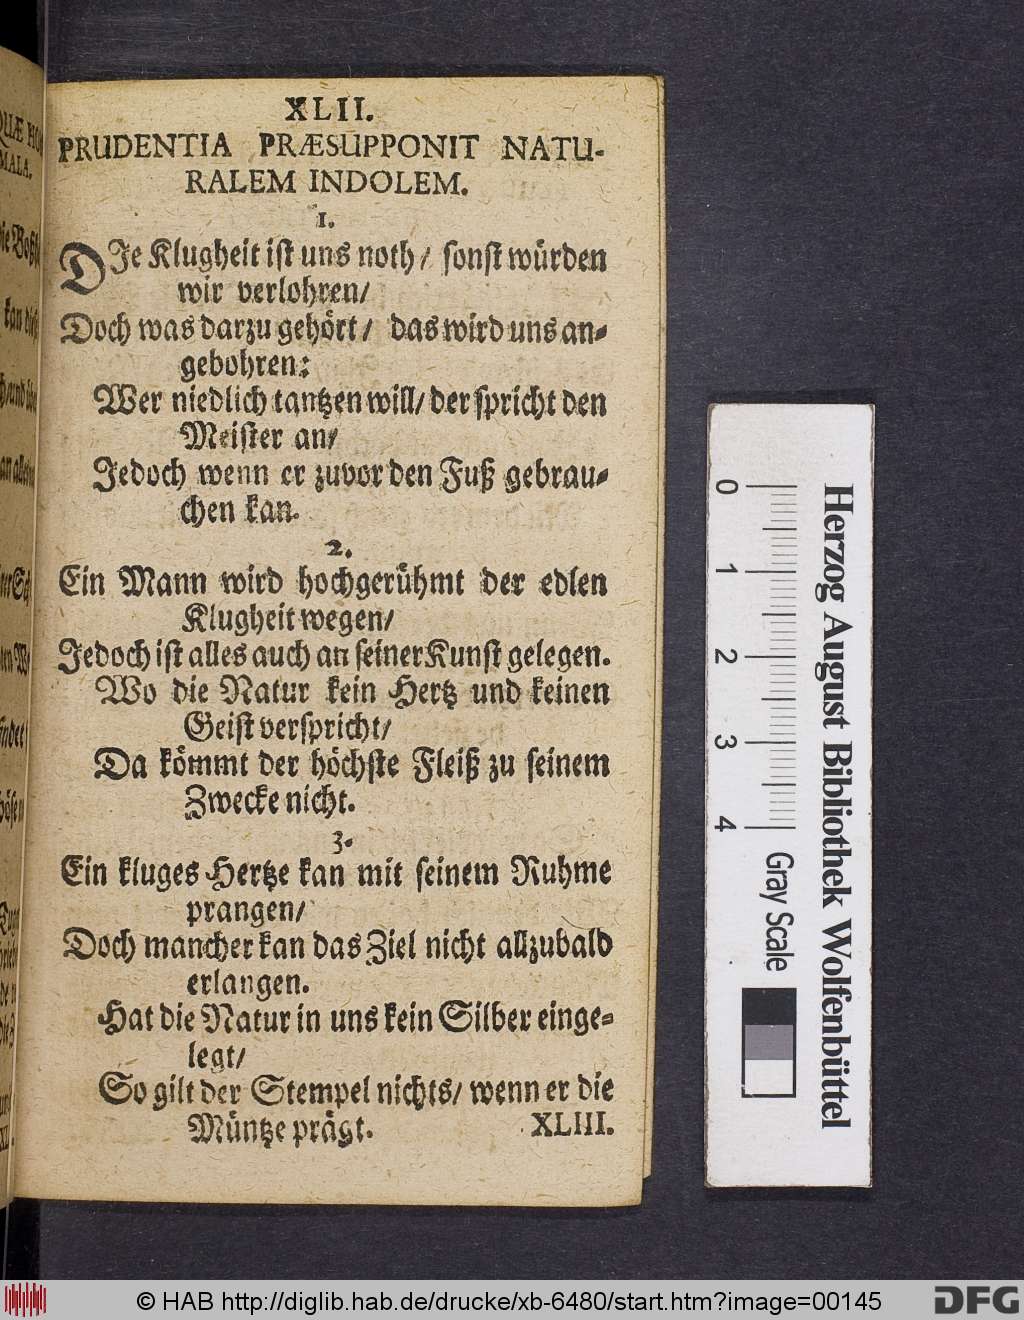 XLII.
PRUDENTIA PRÆSUPPONIT NATU-
RALEM INDOLEM.
1.
DJe Klugheit ist uns noth/ sonst würden
wir verlohren/
Doch was darzu gehört/ das wird uns an-
gebohren:
Wer niedlich tantzen will/ der spricht den
Meister an/
Jedoch wenn er zuvor den Fuß gebrau-
chen kan.
2.
Ein Mann wird hochgerühmt der edlen
Klugheit wegen/
Jedoch ist alles auch an seiner Kunst gelegen.
Wo die Natur kein Hertz und keinen
Geist verspricht/
Da kömmt der höchste Fleiß zu seinem
Zwecke nicht.
3.
Ein kluges Hertze kan mit seinem Ruhme
prangen/
Doch mancher kan das Ziel nicht allzubald
erlangen.
Hat die Natur in uns kein Silber einge-
legt/
So gilt der Stempel nichts/ wenn er die
Müntze prägt.
XLIII.
0 1 2 3 4
Gray Scale
Herzog August Bibliothek Wolfenbüttel
© HAB http://diglib.hab.de/drucke/xb-6480/start.htm?image=00145
DFG